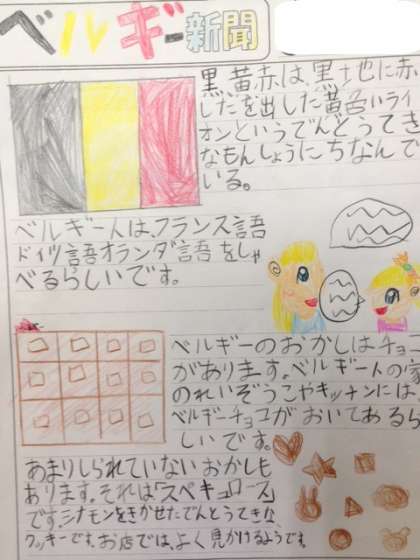 ベルギー新聞
黒、黄、赤は、黒地に赤い
したを出した黄色いライ
オンというでんとうてき
なもんしょうにちなんで
いる。
ベルギー人は、フランス語
ドイツ語オランダ語をしゃ
べるらしいです。
ベルギーのおかしはチョコ
があります。ベルギー人の家
のれいぞうこやキッチンには、
ベルギーチョコがおいてあるら
しいです。
あまりしられていないおかしも
あります。それは「スペキュロース」
です。シナモンをきかせたでんとうてきな
クッキーです。お店では、よく見かけるようです。